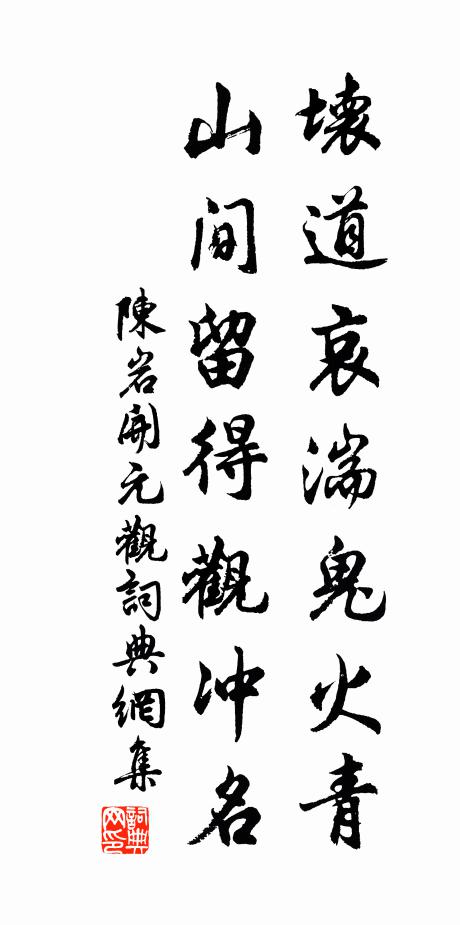 壞道哀湍鬼火青
山間留得觀沖名
陳岩開元觀詞典網集
詞典
网印